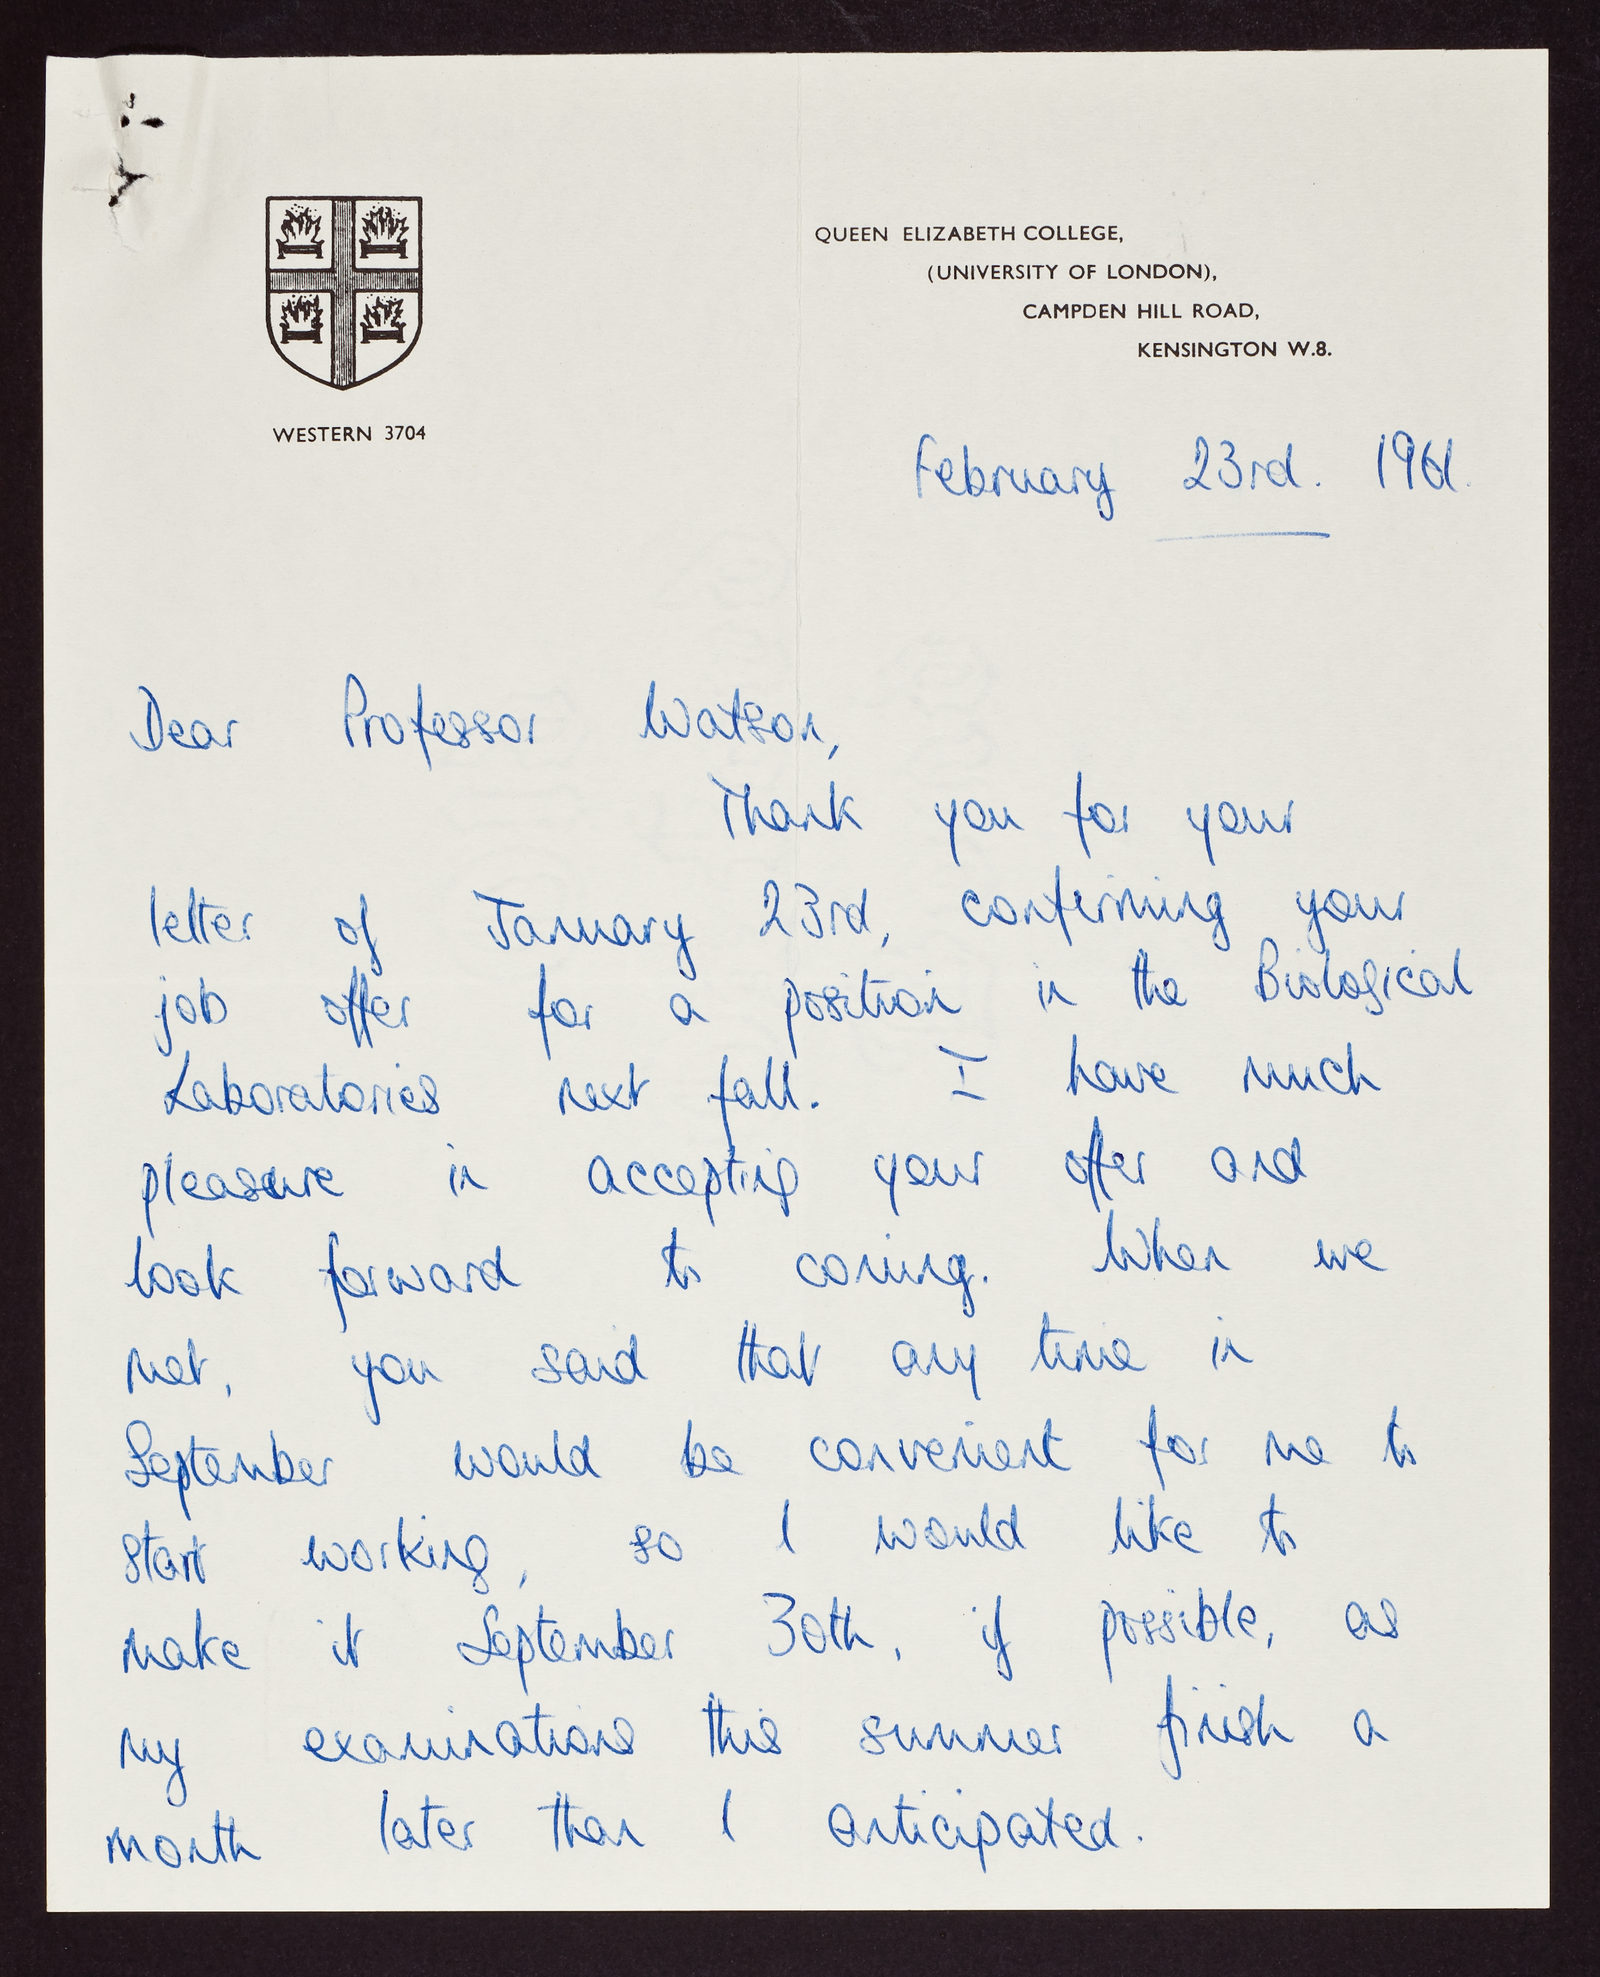 QUEEN ELIZABETH COLLEGE,
(UNIVERSITY OF LONDON),
CAMPDEN HILL ROAD,
KENSINGTON W.8.
WESTERN 3704
February 23rd. 1961.
Dear Professor Watson,
Thank you for your
letter of January 23rd, confirming your
job offer for a position in the Biological
Laboratories next fall. I have much
pleasure in accepting your offer and
look forward to coming. When we
met, you said that any time in
September would be convenient for me to
start working, so I would like to
make it September 30th, if possible, as
my examinations this summer finish a
month later than I anticipated.